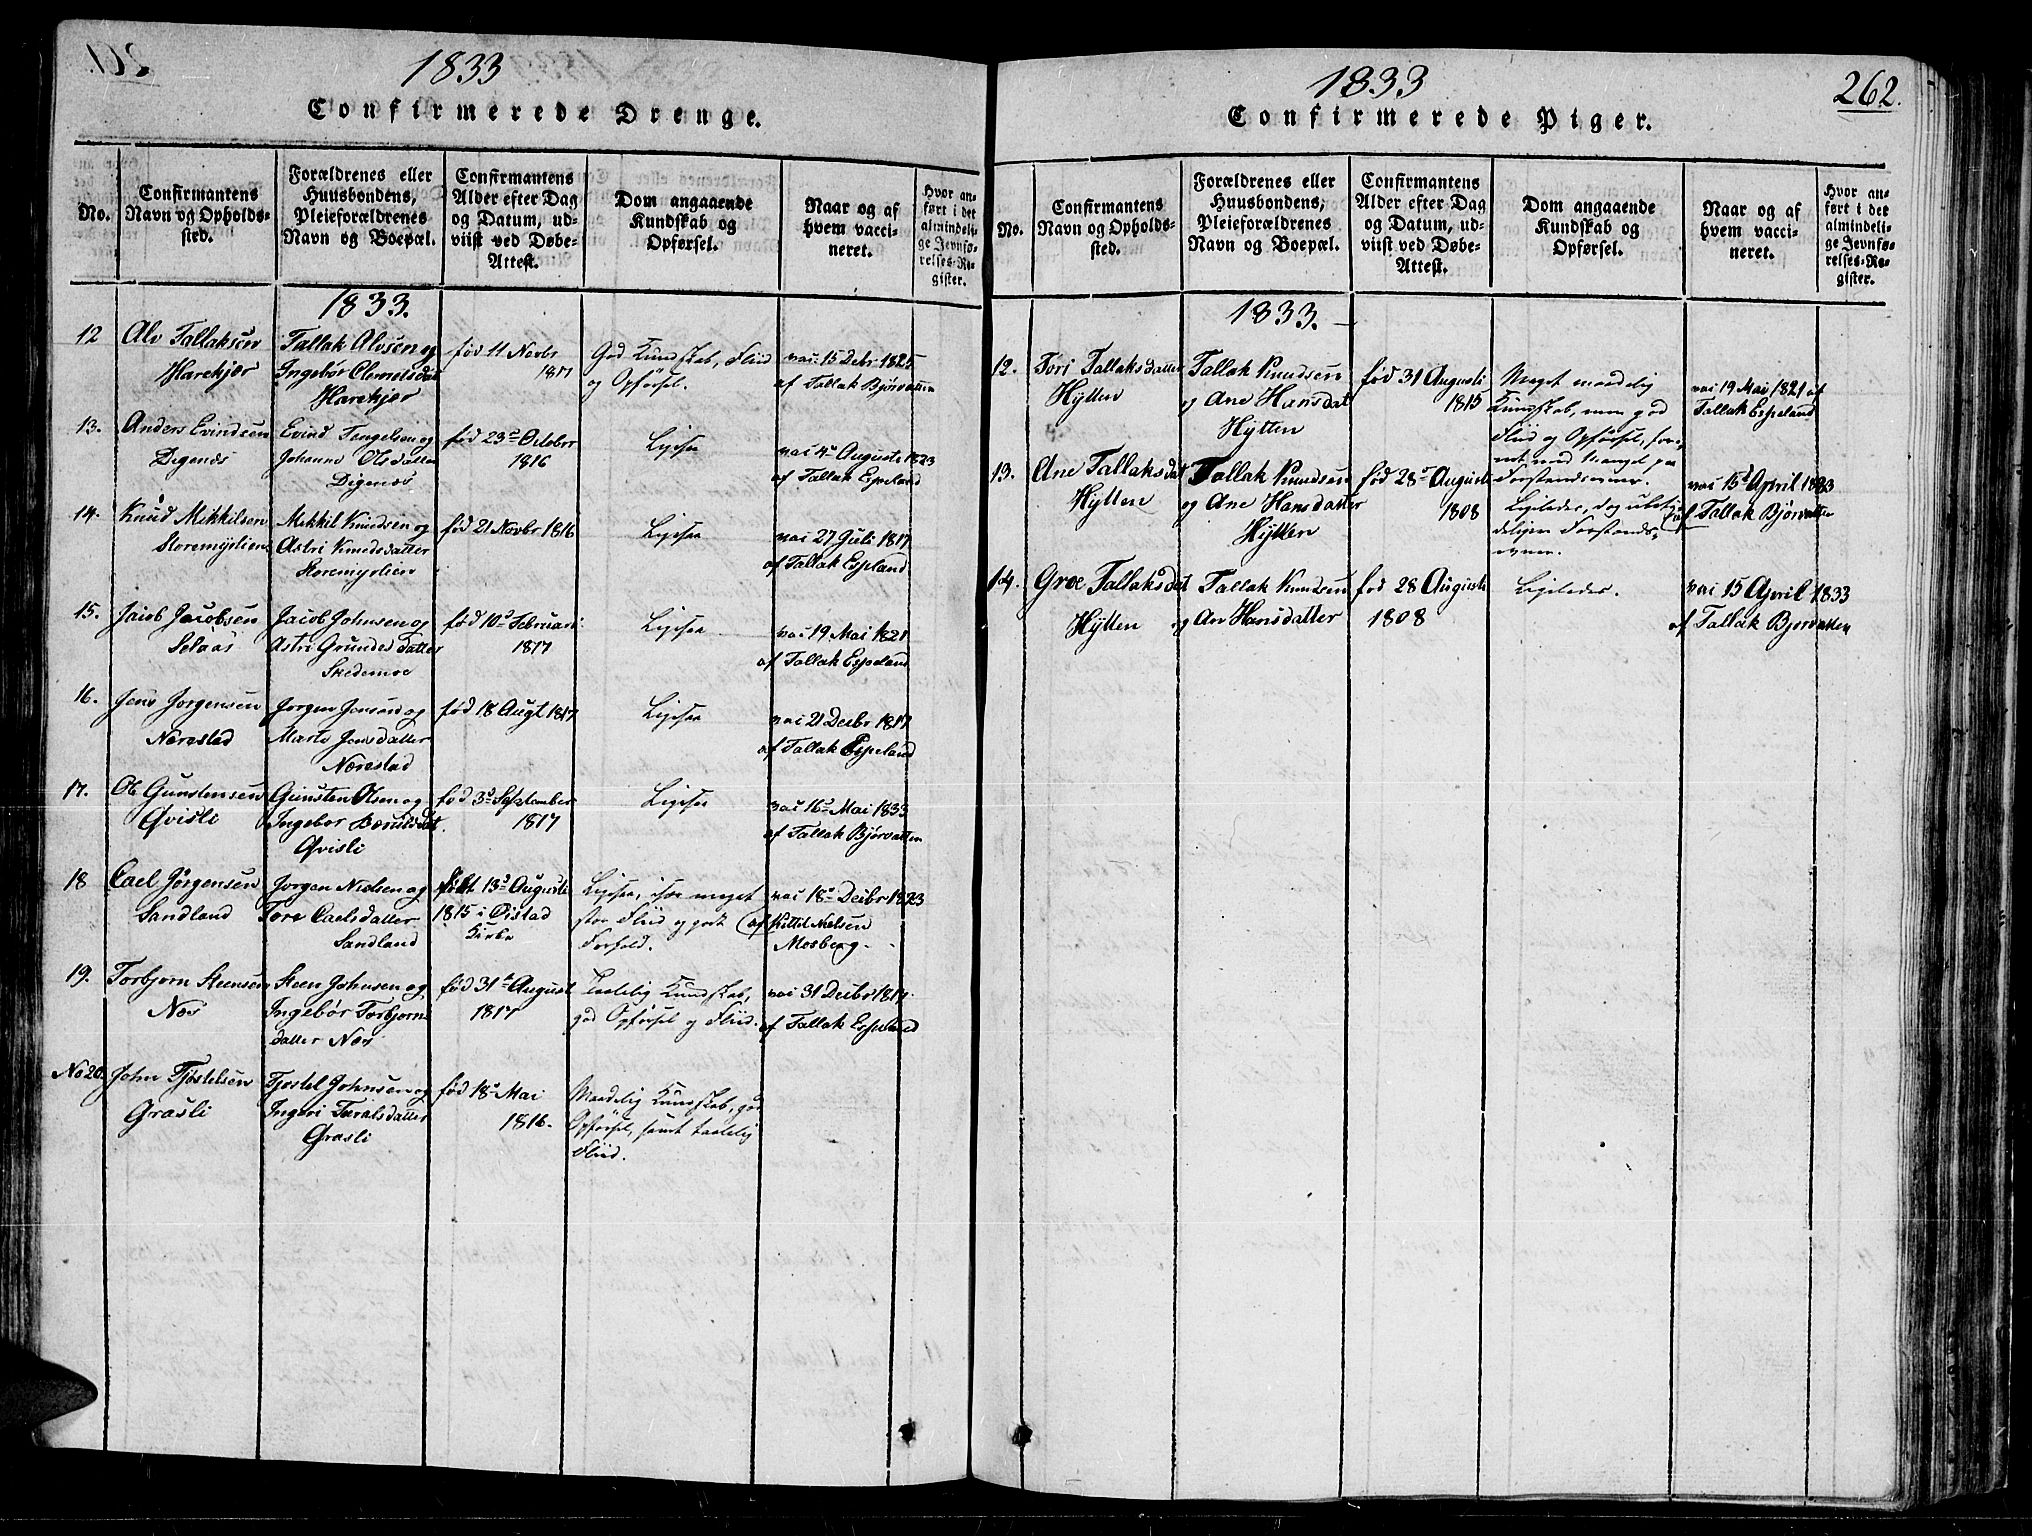 1833
Confirmerede Drenge.
No.
Confirmantens
Navn og Opholds-
sted.
Forældrenes eller
Huusbondens,
Pleieforældrenes
Navn og Boepæl.
Confirmantens
Alder efter Dag
og Datum, ud-
viist ved Døbe-
Attest.
Dom angaaende
Kundskab og
Opførsel.
Naar og af
hvem vacci-
neret.
Hvor an-
ført i det
almindeli-
ge Jevnfø-
relses-Re-
gister.
1833.
12
Alv Tallaksen
Harekjær
Tallak Alvsen og
Ingebor Clemetsdat
Harekjær
fød 11 Novbr
1817
God Kundskab, Fliid
og Opførsel.
vac 15 Debr 1825
af Tallak Bjørvatten
13.
Anders Evindsen
Digenæs
Evind Tengelsen og
Johanne Olsdatter
Digenæs
fød 23de October
1816
Ligesaa
vac 4de Augusti 1823
af Tallak Espeland
14.
Knud Mikkilsen
Storemyrlien
Mikkil Knudsen og
Astri Knudsdatter
Storemyrlien
fød 21 Novbr 1816
Ligesaa
vac 27 Juli 1817
af Tallak Espland
15.
Jacob Jacobsen
Selaas
Jacob Johnsen og
Astri Grundesdatter
Skedemoe
fød 10de Februari
1817
Ligesaa
vac 19 Mai 1821
af Tallak Espeland
16.
Jens Jorgensen
Nærestad
Jorgen Jensen og
Marte Jensdatter
Nærestad
fød 18 Augt 1817
Ligesaa
vac 21 Decbr 1817
af Tallak Espeland
17.
Ole Gunstensen
Qvisli
Gunsten Olsen og
Ingebor Bærulsdat.
Qvisli
fød 3de September
1817
Ligesaa
vac 16de Mai 1833
af Tallak Bjørvatten
18
Cael Jørgensen
Sandland
Jorgen Nielsen og
Tore Caelsdatter
Sandland
født 13de Augusti
1815 i Øistad
Kirke
Ligesaa, især meget
stor Fliid og godt
Forhold.
vac 18de Decbr 1823
(af Kittel Nielsen
Mosberg.
19.
Torbjorn Steensen
Næs
Steen Johnsen og
Ingebor Torbjorns
datter Næs
fød 31te August
1817
Taalelig Kundskab,
god Opførsel og Fliid.
vac 31 Decbr 1817
af Tallak Espeland
No 20.
John Tjøstelsen
Grasli
Tjostel Johnsen og
Ingeri Taralsdatter
Grasli
fød 18de Mai
1816.
Maadelig Kundskab, god
Opførsel, samt taalelig
Fliid.
1833
262.
Confirmerede Piger.
No.
Confirmantens
Navn og Opholds-
sted.
Forældrenes eller
Huusbondens,
Pleieforældrenes
Navn og Boepæl.
Confirmantens
Alder efter Dag
og Datum, ud-
viist ved Døbe-
Attest.
Dom angaaende
Kundskab og
Opførsel.
Naar og af
hvem vacci-
neret.
Hvor an-
ført i det
almindeli-
ge Jevnfø-
relses-Re-
gister.
1833.
12.
Tori Tallaksdatter
Hytten
Tallak Knudsen
og Ane Hansdat
Hytten
fød 31 Augusti
1815
Meget maadelig
Kundskab, men god
Fliid og Opførsel, fore-
net med Mangel paa
Forstandsevner.
vac 19 Mai 1821 af
Tallak Espeland
13.
Ane Tallaksdat
Hytten
Tallak Knudsen
og Ane Hansdatter
Hytten
fød 28de Augusti
1808
Ligeledes, dog ubety-
delige Forstands-
evner.
vac 15de April 1833
af Tallak Bjørvatten
14.
Groe Tallaksdat
Hytten
Tallak Knudsen
og An Hansdatter
fød 28 Augusti
1808
Ligeledes.
vac 15 April 1833
af Tallak Bjorvatten